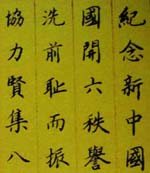 紀念新中國
國開六秩譽
洗前耻而振
協力賢集八